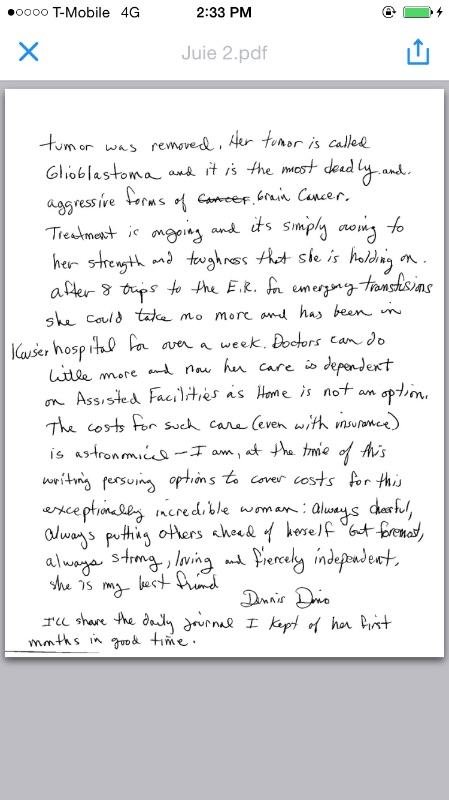 T-Mobile 4G 2:33 PM
Juie 2.pdf
tumor was removed. Her tumor is called
Glioblastoma and it is the most deadly and
aggressive forms of Cancer brain Cancer.
Treatment is ongoing and its simply owing to
her strength and toughness that she is holding on.
after 8 trips to the E.R. for emergency transfusions
she could take no more and has been in
Kaiser hospital for over a week. Doctors can do
little more and now her care is dependent
on Assisted Facilities as Home is not an option.
The costs for such care (even with insurance)
is astronmical – I am, at the time of this
writing persuing options to cover costs for this
exceptionally incredible woman: always cheerful,
always putting others ahead of herself but foremost,
always strong, loving and fiercely independent.
she is my best friend
Dennis Dino
I'll share the daily journal I kept of her first
months in good time.